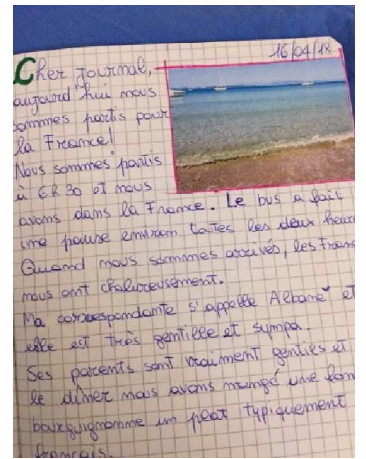 16/04/18
Cher Journal,
aujourd'hui nous
sommes partis pour
la France!
Nous sommes partis
à 6h30 et nous
avons dans la France. Le bus a fait
une pause environ toutes les deux heures
Quand nous sommes arrivés, les fran
nous ont chaleureusement.
Ma correspondante s'appelle Albane et
elle est très gentille et sympa.
Ses parents sont vraiment gentils et
le dîner nous avons mangé une
bourguignonne un plat typiquement
français.